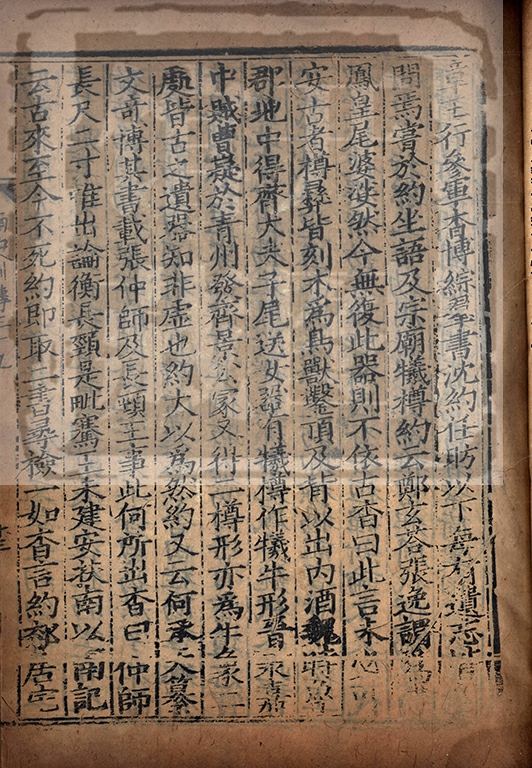 王行參軍杳博綜羣書沈約任昉以下每有遺忘皆
問焉嘗於約坐語及宗廟犧樽約云鄭玄荅張逸謂爲
鳳皇尾婆娑然今無復此器則不依古杳曰此言未必可
安古者樽彝皆刻木爲鳥獸鑿頂及背以出内酒魏時魯
郡地中得齊大夫子尾送女器有犧樽作犧牛形晉永嘉
中賊曹嶷於青州發齊景公冢又得二樽形亦爲牛象二
處皆古之遺器知非虛也約大以爲然約又云何承天纂
文竒博其書載張仲師及長頸王事此何所出杳曰仲師
長尺二寸惟出論衡長頸是毗騫王朱建安扶南以南記
云古來至今不死約即取二書尋檢一如杳言約郊居宅